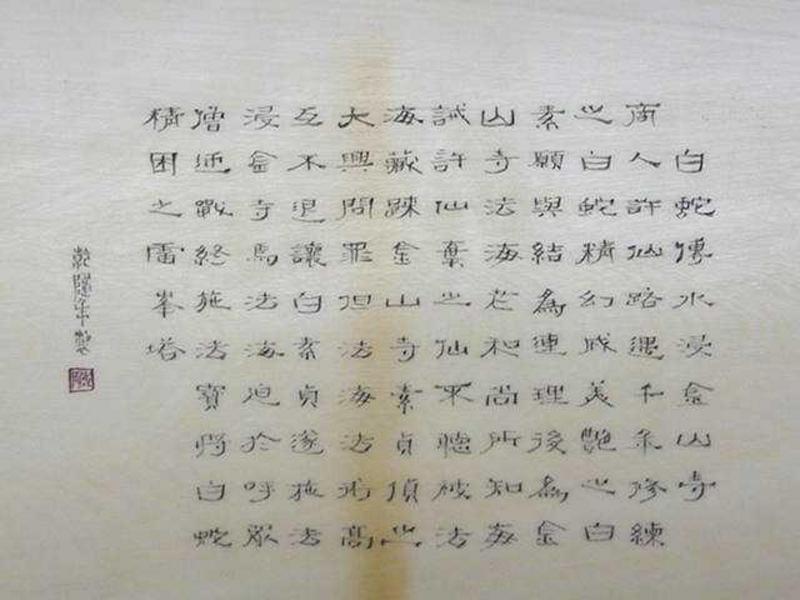 白蛇傳水浸金山寺
商人許仙路遇千年修練
之白蛇精幻成美艷之白
素願與結為連理後為金
山寺法海芒和尚所知海
誡許仙棄之仙不聽被法
海藏踈金山寺素貞頂之
大興問罪但法海法術高
互不退讓白素貞遂施法
浸金寺馬法海迫於呼眾
僧迎戰終施法寶將白蛇
精困之雷峯塔
乾隆年製